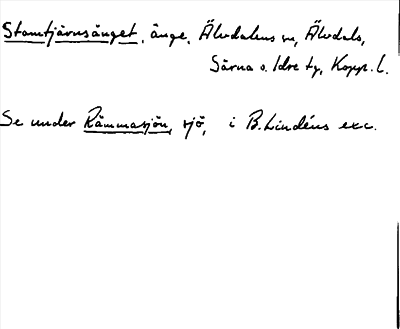 Stamtjärnsänget, änge, Älvdalens sn, Älvdals,
Särna o. Idre tg, Kopp. l.
Se under Rämmasjön, sjö, i B. Lindéns exc.